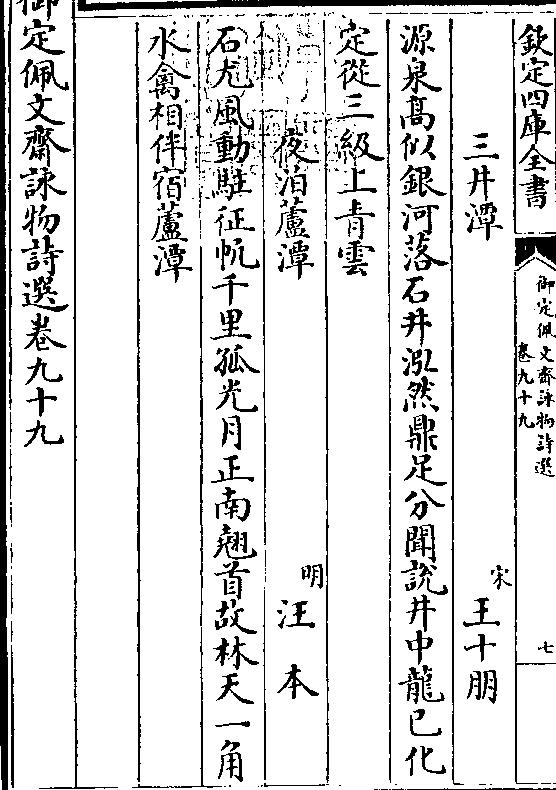 欽定四庫全書
御定佩文齋詠物詩選
卷九十九
七
三井潭
宋
王十朋
源泉髙似銀河落石井泓然鼎足分聞說井中龍已化
定從三級上青雲
夜泊蘆潭
明
汪本
石尤風動駐征帆千里孤光月正南翹首故林天一角
水禽相伴宿蘆潭
御定佩文齋詠物詩選卷九十九